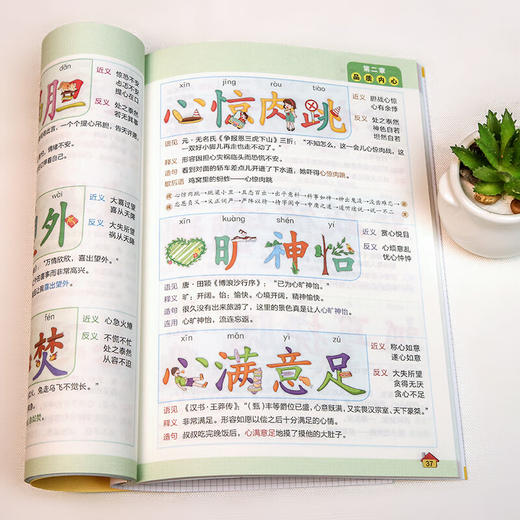 dǎn
胆
近义 惊恐不安
忐忑不安
提心在口
反义 处之泰然
若无其事
一个个提心吊胆,
情绪不安。
着自己。
wài
外
近义 大喜过望
喜从天降
反义 大失所望
祸从天降
"万情欣欣,喜出望外。"
事而非常高兴。
喜出望外。
fén
焚
近义 心急火燎
反义 不慌不忙
处之泰然
从容不迫
兔走乌飞不觉长。"
第二章
品质内心
xīn jīng ròu tiào
心惊肉跳
近义 胆战心惊
心有余悸
反义 处之泰然
神色自若
坦然自若
语见 元·无名氏《争报恩三虎下山》三折:"不知怎么,这一会儿心惊肉战,这
一双好小脚儿再走也走不动了。"
释义 形容因担心灾祸临头而恐慌不安。
造句 看到对面的轿车差点儿开进了下水道,她吓得心惊肉跳。
歇后语 鸡窝里的蚂蚱——心惊肉跳
xīn kuàng shén yí
旷神怡
近义 赏心悦目
反义 心烦意乱
忧心忡忡
语见 唐·田颖《博浪沙行序》:"已为心旷神怡。"
释义 旷:开阔。怡:愉快。心境开阔,精神愉快。
造句 很久没有出来旅游了,这里的景色真是让人心旷神怡。
连用 心旷神怡,流连忘返。
xīn mǎn yì zú
心满意足
近义 称心如意
遂心如意
反义 大失所望
贪得无厌
贪心不足
语见 《汉书·王莽传》:"(甄)丰等爵位已盛,心意既满,又实畏汉宗室、天下豪桀。"
释义 非常满足。形容如愿以偿之后十分满足的心情。
造句 叔叔吃完晚饭后,心满意足地摸了摸他的大肚子。
37